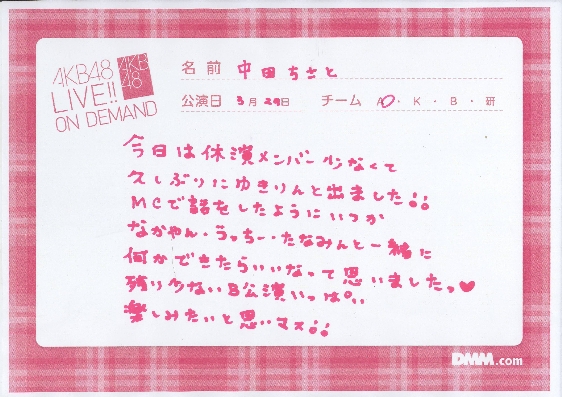 AKB48
LIVE!!
ON DEMAND
AKB
48
名前 中田ちさと
公演日 3月29日 チーム A・K・B・研
今日は休演メンバー少なくて
久しぶりにゆきりんと出ました!!
MCで話をしたようにいつか
なかやん・うっちー・たなみんと一緒に
何かできたらいいなって思いましたっ♥
残り少ないB公演いっぱい
楽しみたいと思いマス!!
DMM.com